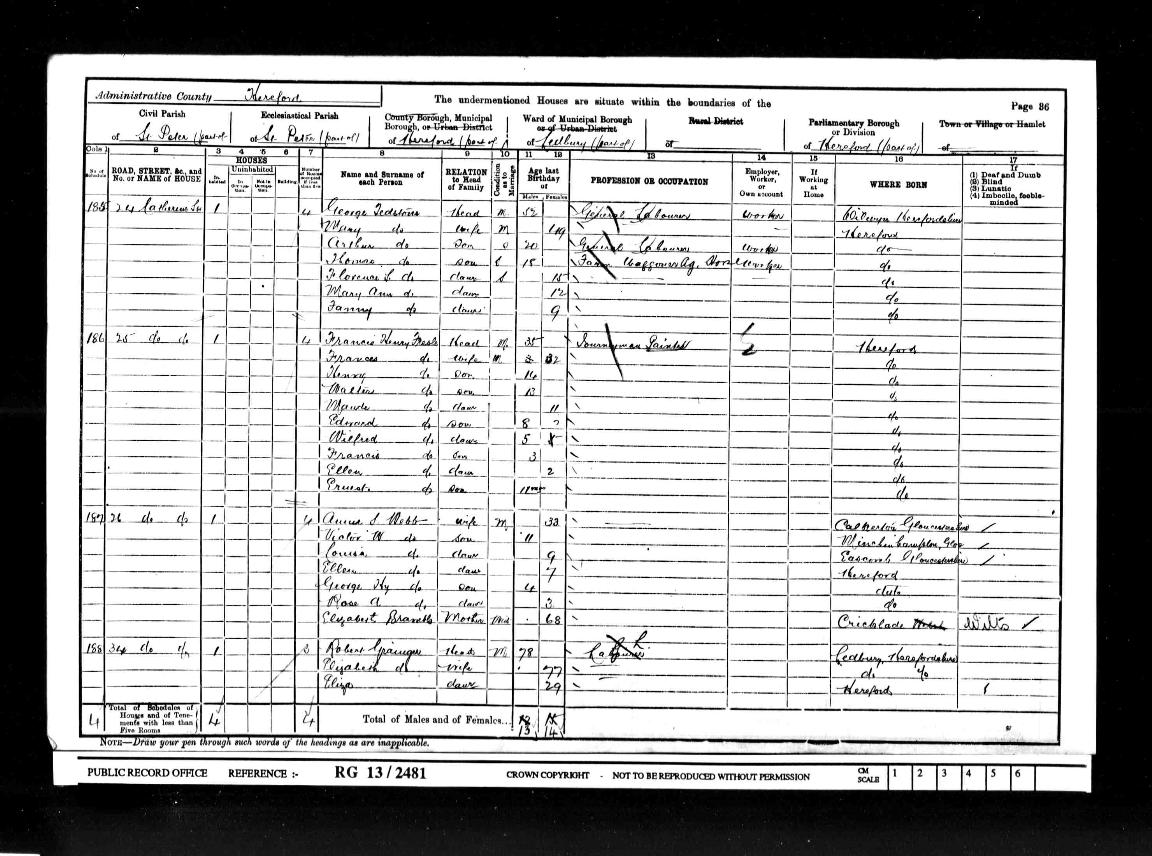 Administrative County Hereford
The undermentioned Houses are situate within the boundaries of the
Page 36
Civil Parish
of St. Peter (part of
Ecclesiastical Parish
of St. Peter (part of)
County Borough, Municipal
Borough, or Urban District
of Hereford (part of)
Ward of Municipal Borough
or of Urban District
of Ledbury (part of)
Rural District
of
Parliamentary Borough
or Division
of Hereford (part of)
Town or Village or Hamlet
of
Cols 1 2 3 4 5 6 7 8 9 10 11 12 13 14 15 16 17
No. of Schedule
ROAD, STREET, &c., and No. or NAME of HOUSE
HOUSES
Inhabited
Uninhabited
In Occupation.
Not in Occupation.
Building
Number of Rooms occupied if less than five
Name and Surname of each Person
RELATION to Head of Family
Condition as to Marriage
Age last Birthday of
Males Females
PROFESSION OR OCCUPATION
Employer, Worker, or Own account
If Working at Home
WHERE BORN
If (1) Deaf and Dumb (2) Blind (3) Lunatic (4) Imbecile, feeble-minded
185 24 Catherine St 1 4 George Tedstone Head M 52 General Labourer Worker Herefordshire
Mary do Wife M 49 Hereford
Arthur do Son S 20 General Labourer Worker do
Thomas do Son S 18 Waggoner Ag. Horse Worker do
Florence S. do daur S 15 do
Mary Ann do daur 12 do
Fanny do daur 9 do
186 25 do do 1 4 Francis Henry Head M 35 Journeyman Painter Hereford
Frances do Wife M 32 do
Henry do Son 14 do
Walter do son 13 do
Maude do daur 11 do
Edward do son 8 do
Wilfred do 5 do
Francis do Son 3 do
Ellen do daur 2 do
Ernest do son 11 mos do
187 26 do do 1 4 Annie S Webb Wife M 33 Gloucestershire
Victor W do son 11 Minchinhampton, Glos
Louisa do daur 9 Gloucestershire
Ellen do daur 7 Hereford
George Hy do son 4 ditto
Rose do daur 3 do
Elizabeth Mother Wid 68 Cricklade Wilts
188 34 do do 1 3 Robert Grainger Head M 78 Labourer Ledbury Herefordshire
Elizabeth do Wife 77 do do
Eliza daur 29 Hereford
4 Total of Schedules of Houses and of Tenements with less than Five Rooms 4 4 Total of Males and of Females... 13 14
NOTE—Draw your pen through such words of the headings as are inapplicable.
PUBLIC RECORD OFFICE REFERENCE :- RG 13/2481 CROWN COPYRIGHT - NOT TO BE REPRODUCED WITHOUT PERMISSION CM SCALE 1 2 3 4 5 6